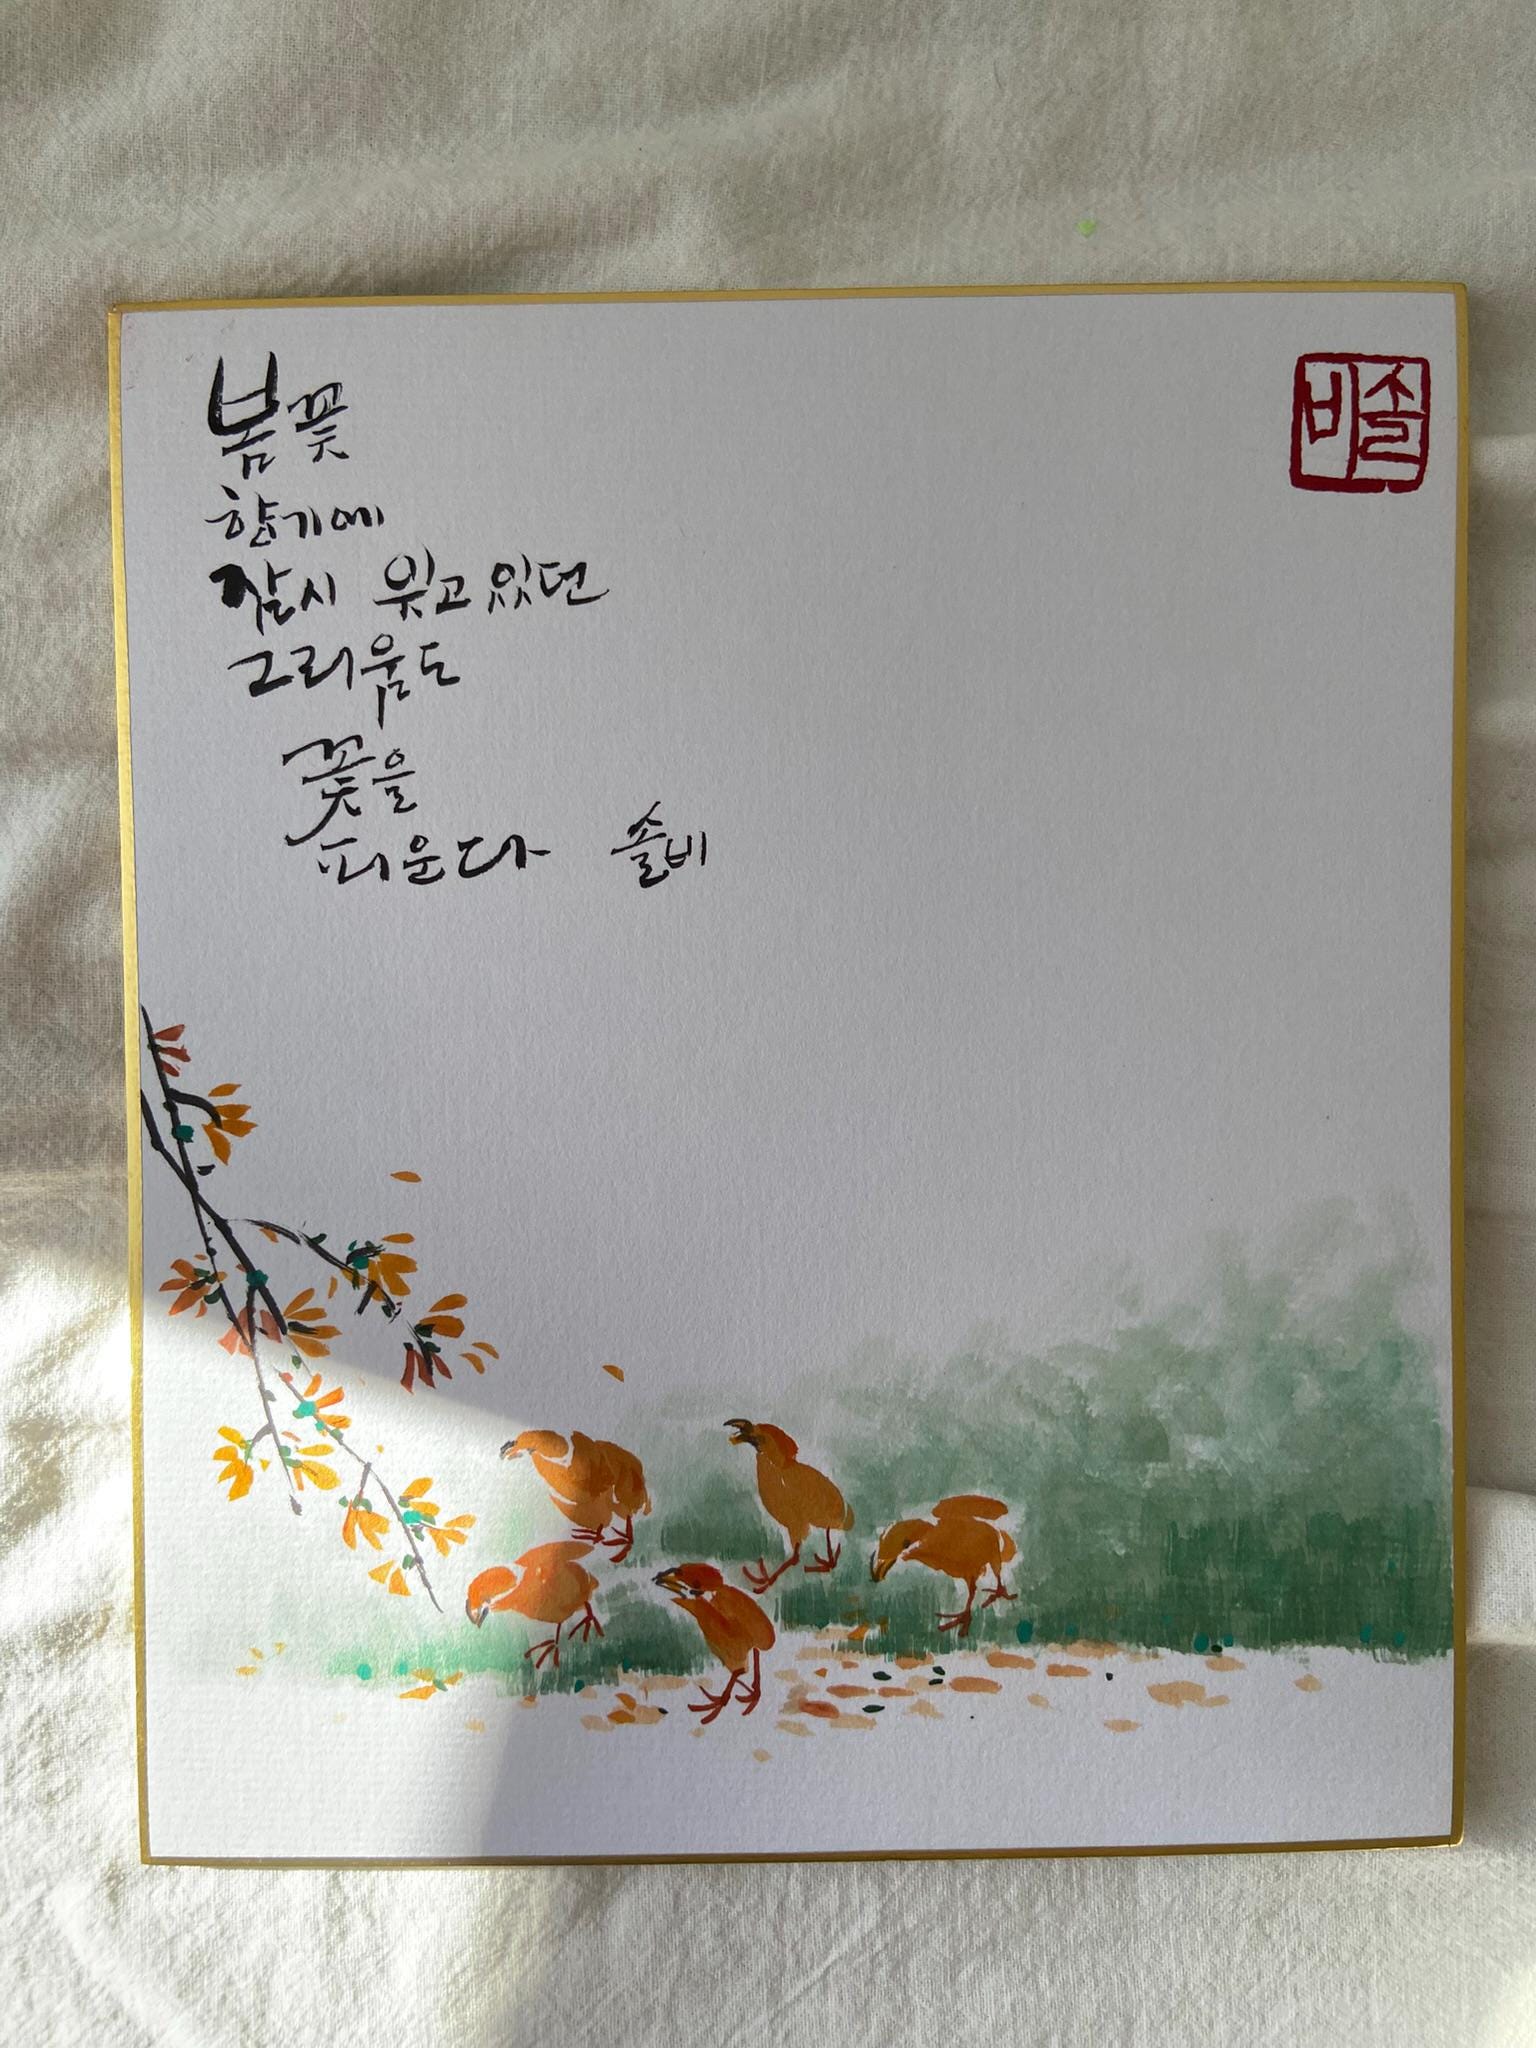 봄꽃
향기에
잠시 잊고 있던
그리움도
꽃을
피운다 솔비
솔비